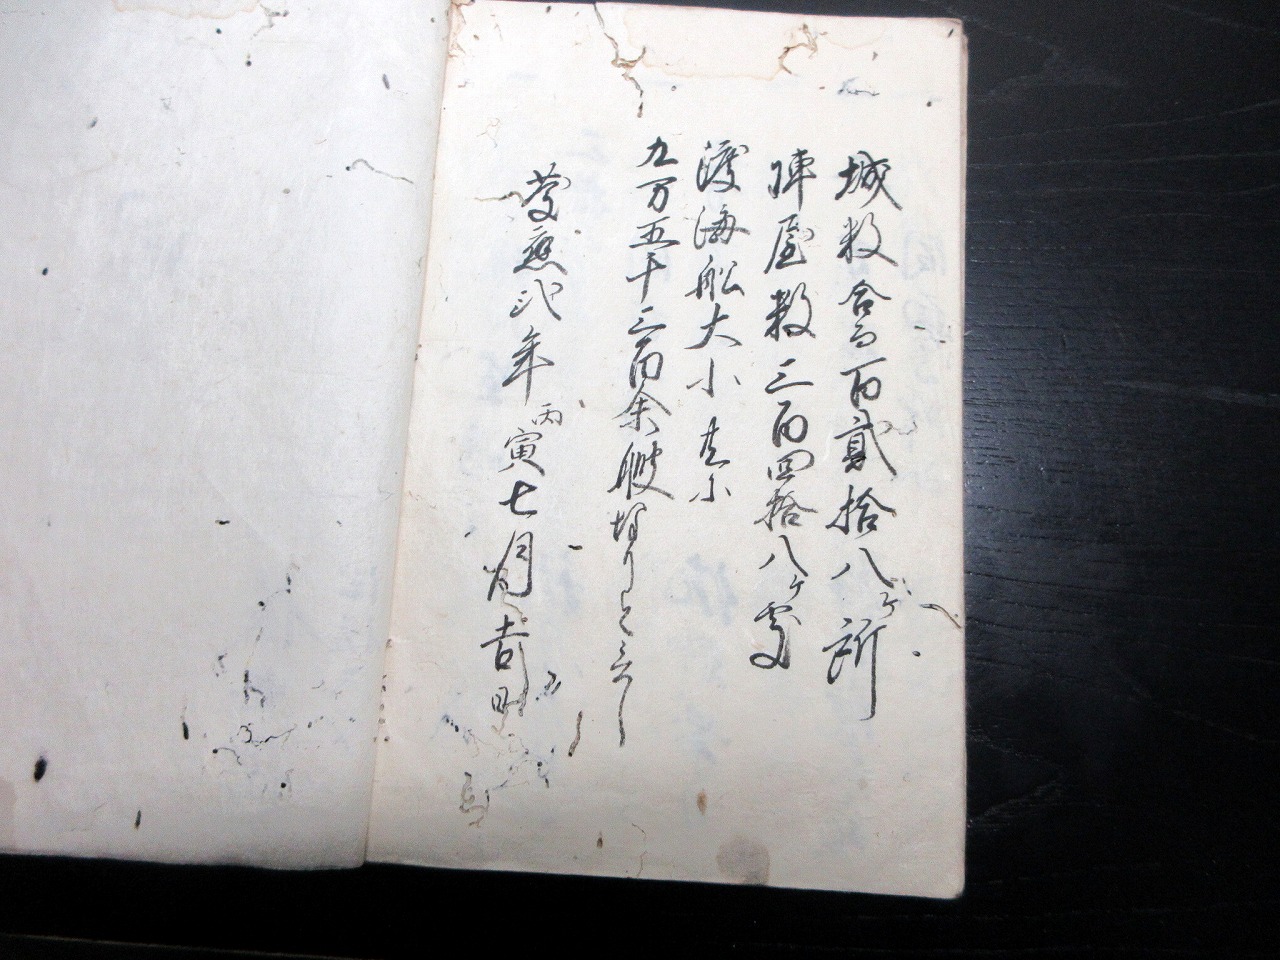 城数合而百貳拾八ケ所
陣屋数三百四拾八ケ处
渡海船大小共ニ
九万五千三百余艘
慶應弐年丙寅七月吉日